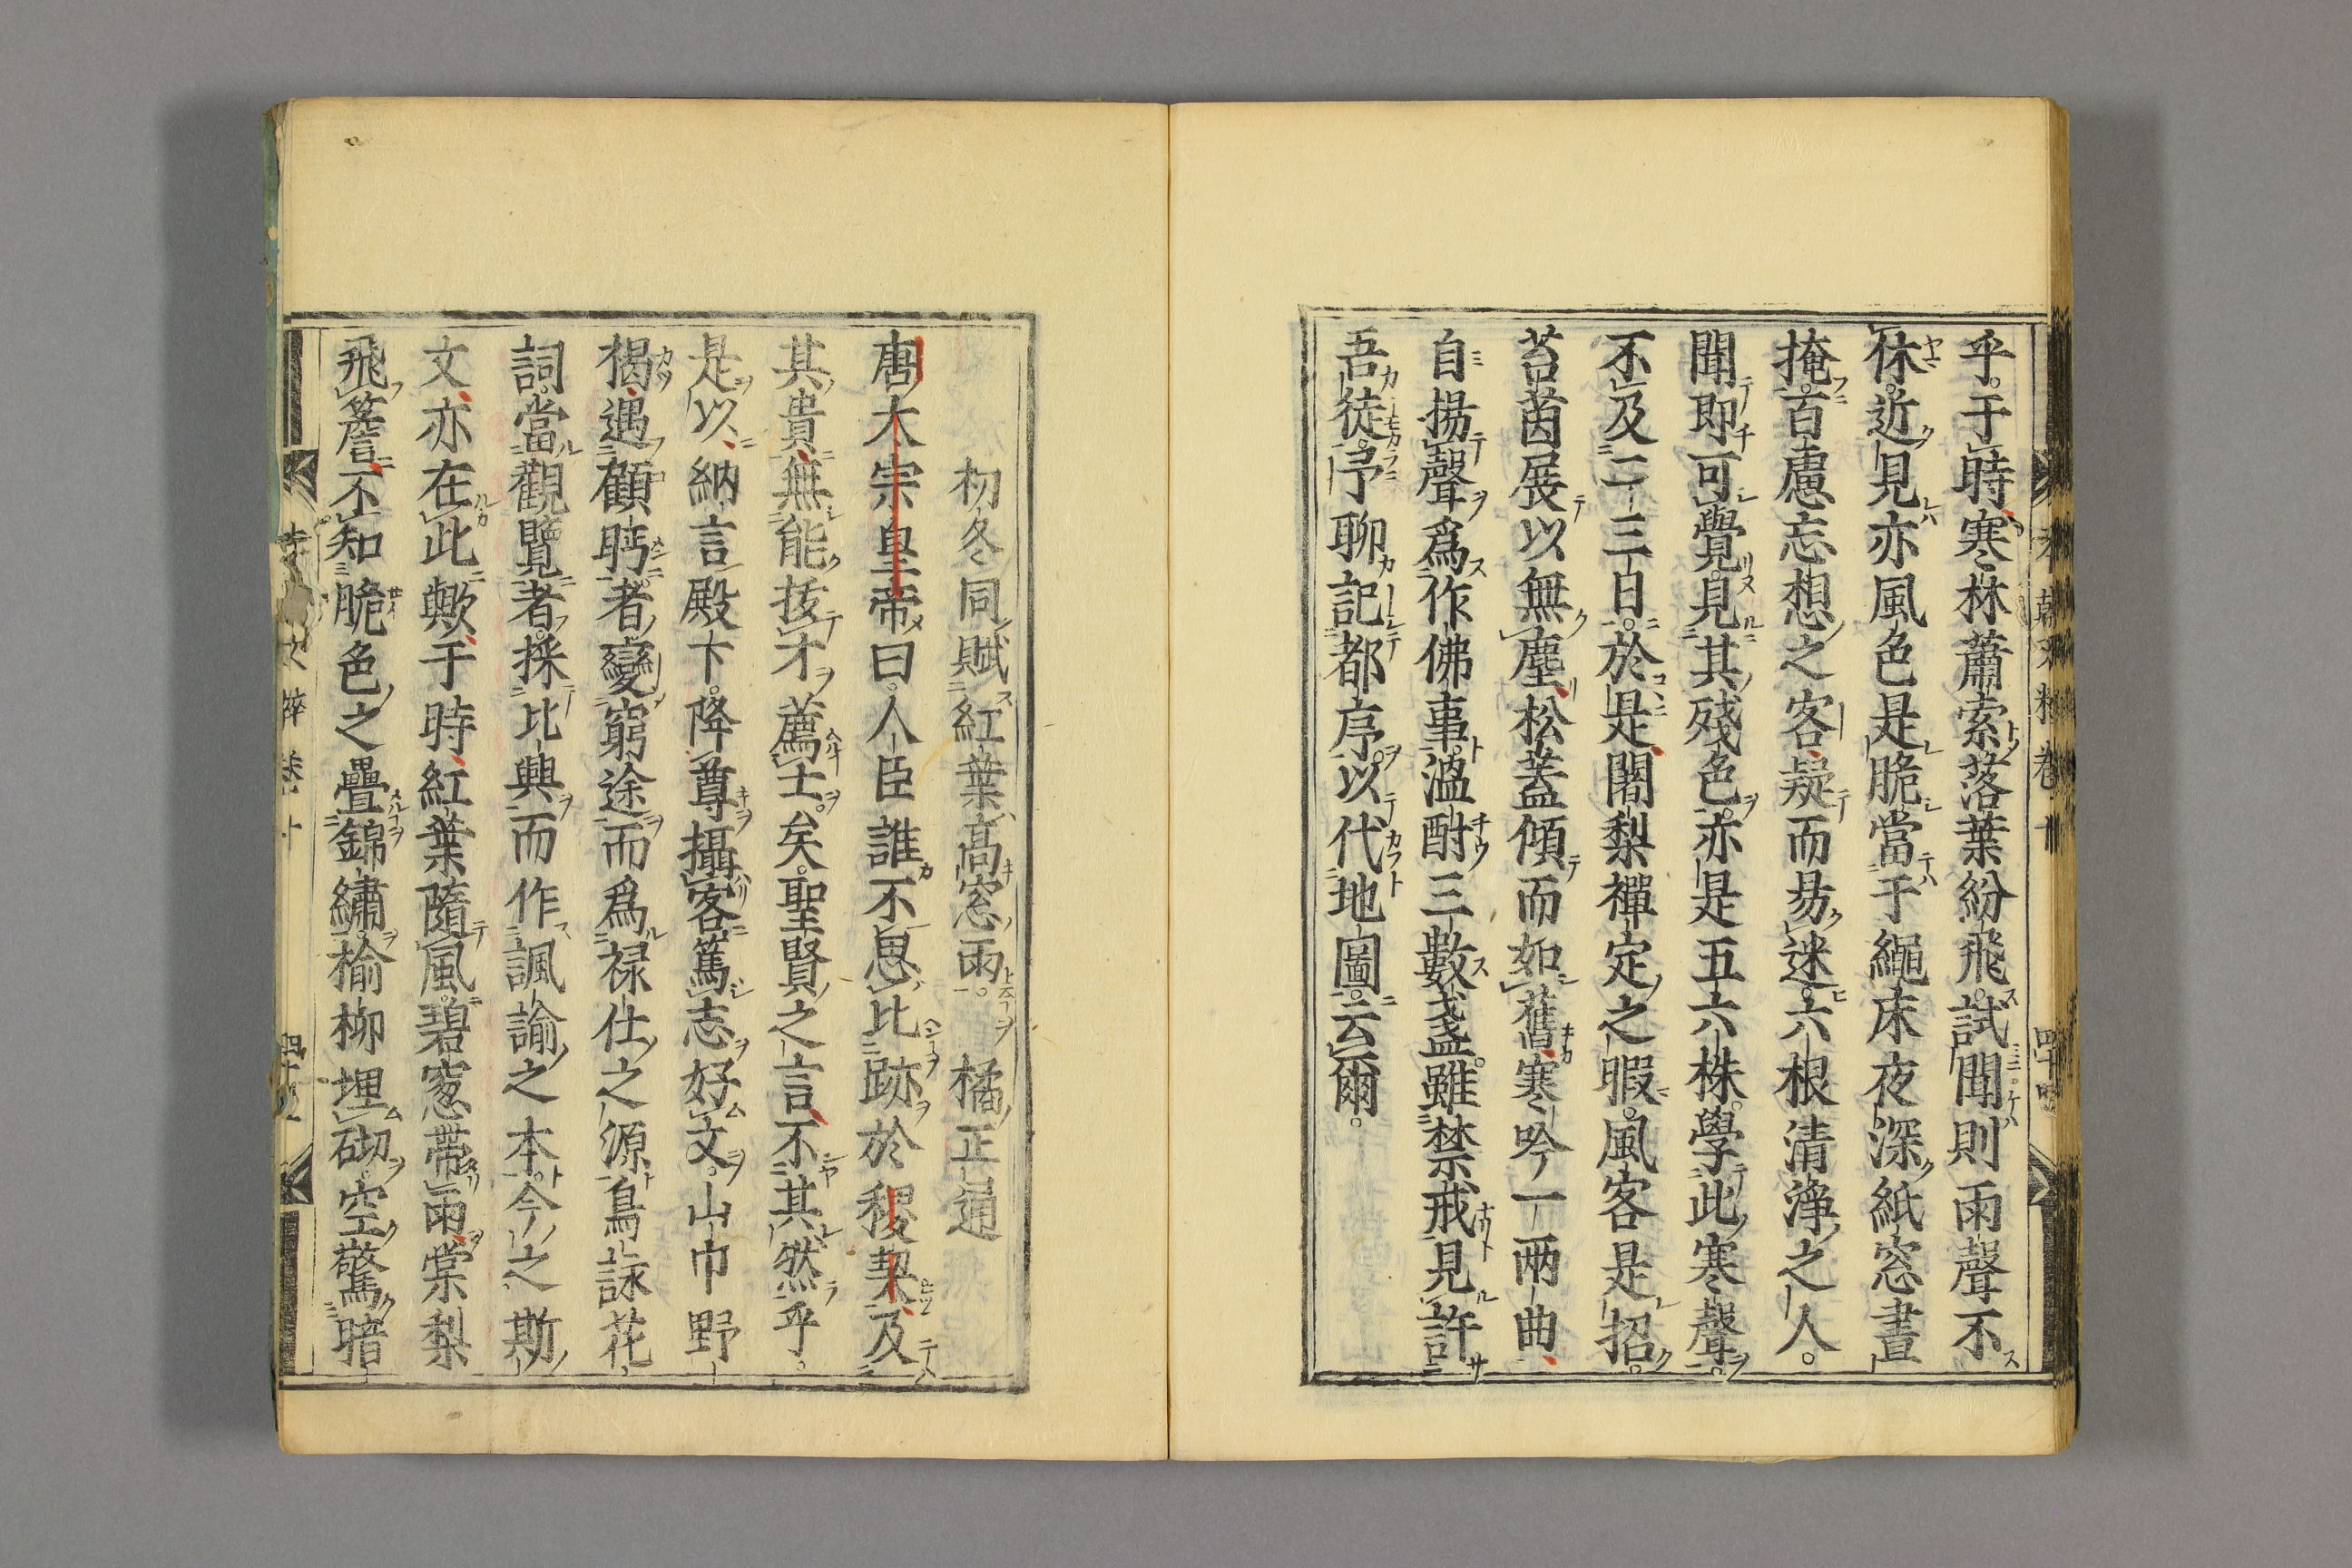 乎。于時寒林蕭索落葉紛飛。試聞則雨聲不
休。近見亦風色是脆。當于繩床夜深紙窓晝
掩。百慮忘想之客疑而易迷。六根清淨之人。
聞即可覺。見其殘色。亦是五六株。學此寒聲。
不及二三日。於是闍梨禪定之暇。風客是招。
苔茵展以無塵松蓋傾而如舊寒吟一兩曲
自揚聲爲作佛事。溫酎三數盞。雖禁戒見許
吾徒。予聊記都序。以代地圖。云爾。
初冬同賦紅葉高窓雨。橘正通
唐太宗皇帝曰。人臣誰不思比跡於稷契及
其貴無能拔才薦士。矣。聖賢之言不其然乎。
是以納言殿下。降尊攝客篤志好文。山巾野
褐遇顧眄者變窮途而爲禄仕之源鳥詠花
詞。當觀覽者。採比興而作諷諭之本。今之斯
文亦在此歟于時紅葉隨風。碧窓帶雨棠梨
飛簷不知脆色之疊錦繡。楡柳埋砌。空驚暗